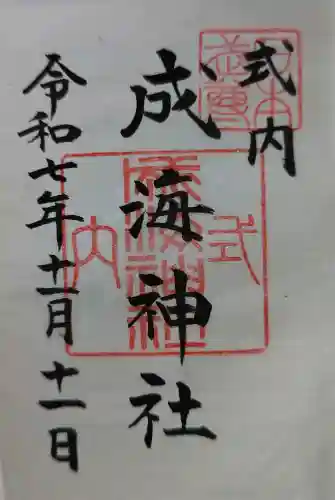 式内
成海神社
令和七年十一月十一日
式内
成海神社